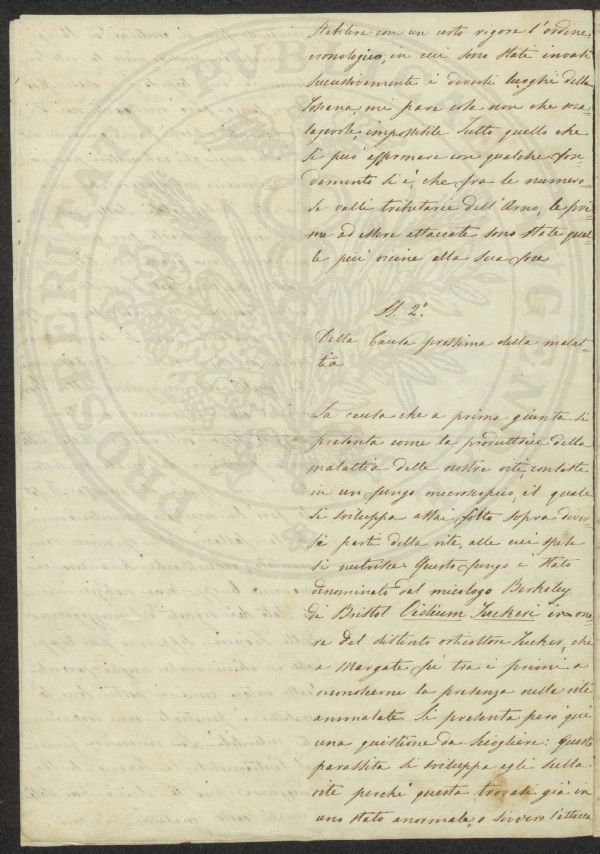 stabilire con un certo rigore l'ordine
cronologico, in cui sono state invasi
successivamente i diversi luoghi della
Toscana, mi pare cosa non che
impossibile. Tutto quello che
si può affermare con qualche fon-
damento si è, che fra le numero-
se valli tributarie dell'Arno, le pri-
me ad essere attaccate sono state quel-
le più vicine alla sua foce
§. 2°.
Della Causa prossima della malat-
tia
La causa che a prima giunta si
presenta come la produttrice della
malattia delle nostre viti, consiste
in un fungo microscopico, il quale
si sviluppa assai folto sopra diver-
se parti della vite, alle cui spese
si nutrisce. Questo fungo è stato
denominato dal micologo Berkeley
di Bristol Oidium Tuckeri in ono-
re del distinto orticultore Tucker, che
a Margate, fu tra i primi a
riconoscerne la presenza nelle viti
ammalate. Si presenta però qui
una quistione da sciogliere: questo
parassita si sviluppa egli sulla
vite perchè questa trovasi già in
uno stato anormale, o sivvero l'attacca
PROSPERITATI PVBLICAE AVGENDAE